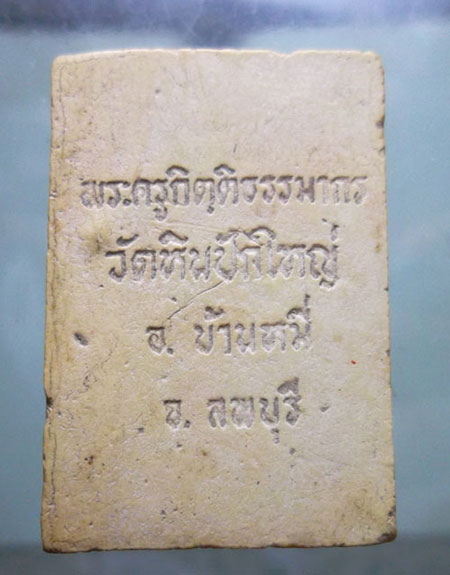 พระครูกิตฺติธรรมากร
วัดหินปักใหญ่
อ. บ้านหมี่
จ. ลพบุรี